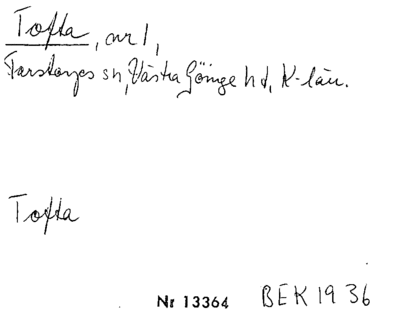 Tofta, nr 1,
Farstorps sn, Västra Göinge hd, K-län.
Tofta
Nr 13364 BEK 1936